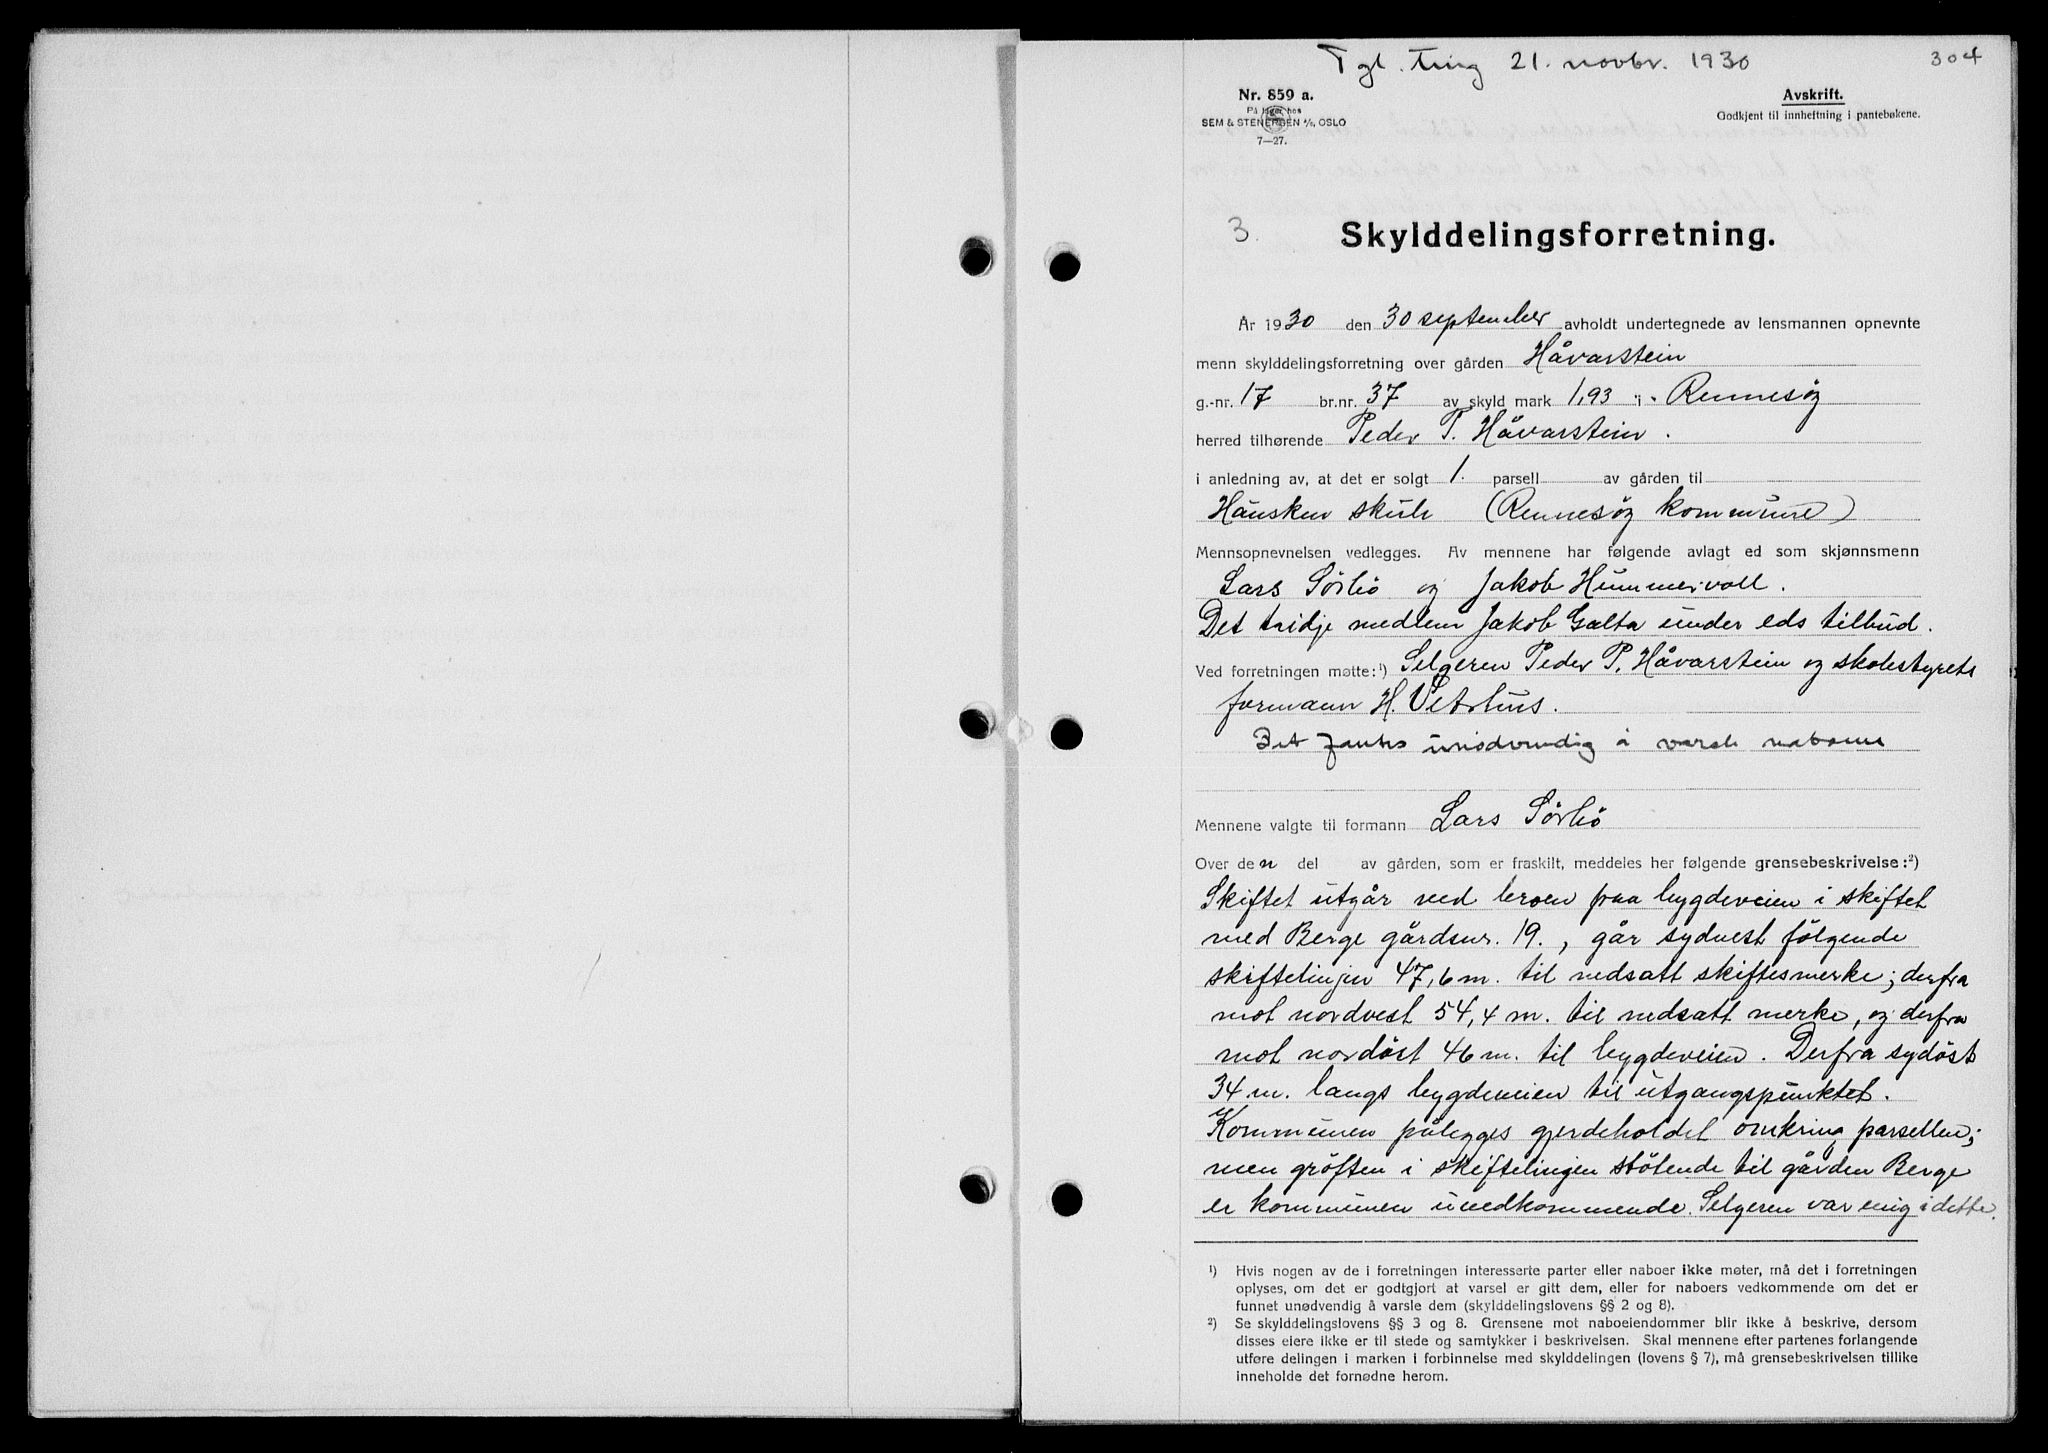 Tgl. ting 21. novbr. 1930
304
Nr. 859 a.
På lager hos
SEM & STENERSEN A/S, OSLO
7—27.
Avskrift.
Godkjent til innheftning i pantebøkene.
3.
Skylddelingsforretning.
År 1930 den 30 september avholdt undertegnede av lensmannen opnevnte
menn skylddelingsforretning over gården Håvarstein
g.-nr. 17 br.nr. 37 av skyld mark 1,93 i Rennesøy
herred tilhørende Peder T. Håvarstein.
i anledning av, at det er solgt 1. parsell av gården til
Hausken skule (Rennesøy kommune)
Mennsopnevnelsen vedlegges. Av mennene har følgende avlagt ed som skjønnsmenn
Lars Sörbö og Jakob Hummervoll.
Det tridje medlem Jakob Galta under eds tilbud.
Ved forretningen møtte:¹) Selgeren Peder P. Håvarstein og skolestyrets
formann H. Vetrhus.
Det fantes unödvendig å varsle naboene
Mennene valgte til formann Lars Sörbö
Over den del av gården, som er fraskilt, meddeles her følgende grensebeskrivelse:²)
Skiftet utgår ved broen paa bygdeveien i skiftet
med Berge gårdsnr. 19., går sydvest fölgende
skiftelinjen 47,6 m. til nedsatt skiftesmerke; derfra
mot nordvest 54,4 m. til nedsatt merke, og derfra
mot nordöst 46 m. til bygdeveien. Derfra sydöst
34 m. langs bygdeveien til utgangspunktet.
Kommunen pålegges gjerdeholdet omkring parsellen;
men gröften i skiftelinjen stötende til gården Berge
er kommunen uvedkommende. Selgeren var enig i dette.
¹) Hvis nogen av de i forretningen interesserte parter eller naboer ikke møter, må det i forretningen
oplyses, om det er godtgjort at varsel er gitt dem, eller for naboers vedkommende om det er
funnet unødvendig å varsle dem (skylddelingslovens §§ 2 og 8).
²) Se skylddelingslovens §§ 3 og 8. Grensene mot naboeiendommer blir ikke å beskrive, dersom
disses eiere ikke er til stede og samtykker i beskrivelsen. Skal mennene efter partenes forlangende
utføre delingen i marken i forbinnelse med skylddelingen (lovens § 7), må grensebeskrivelsen tillike
inneholde det fornødne herom.